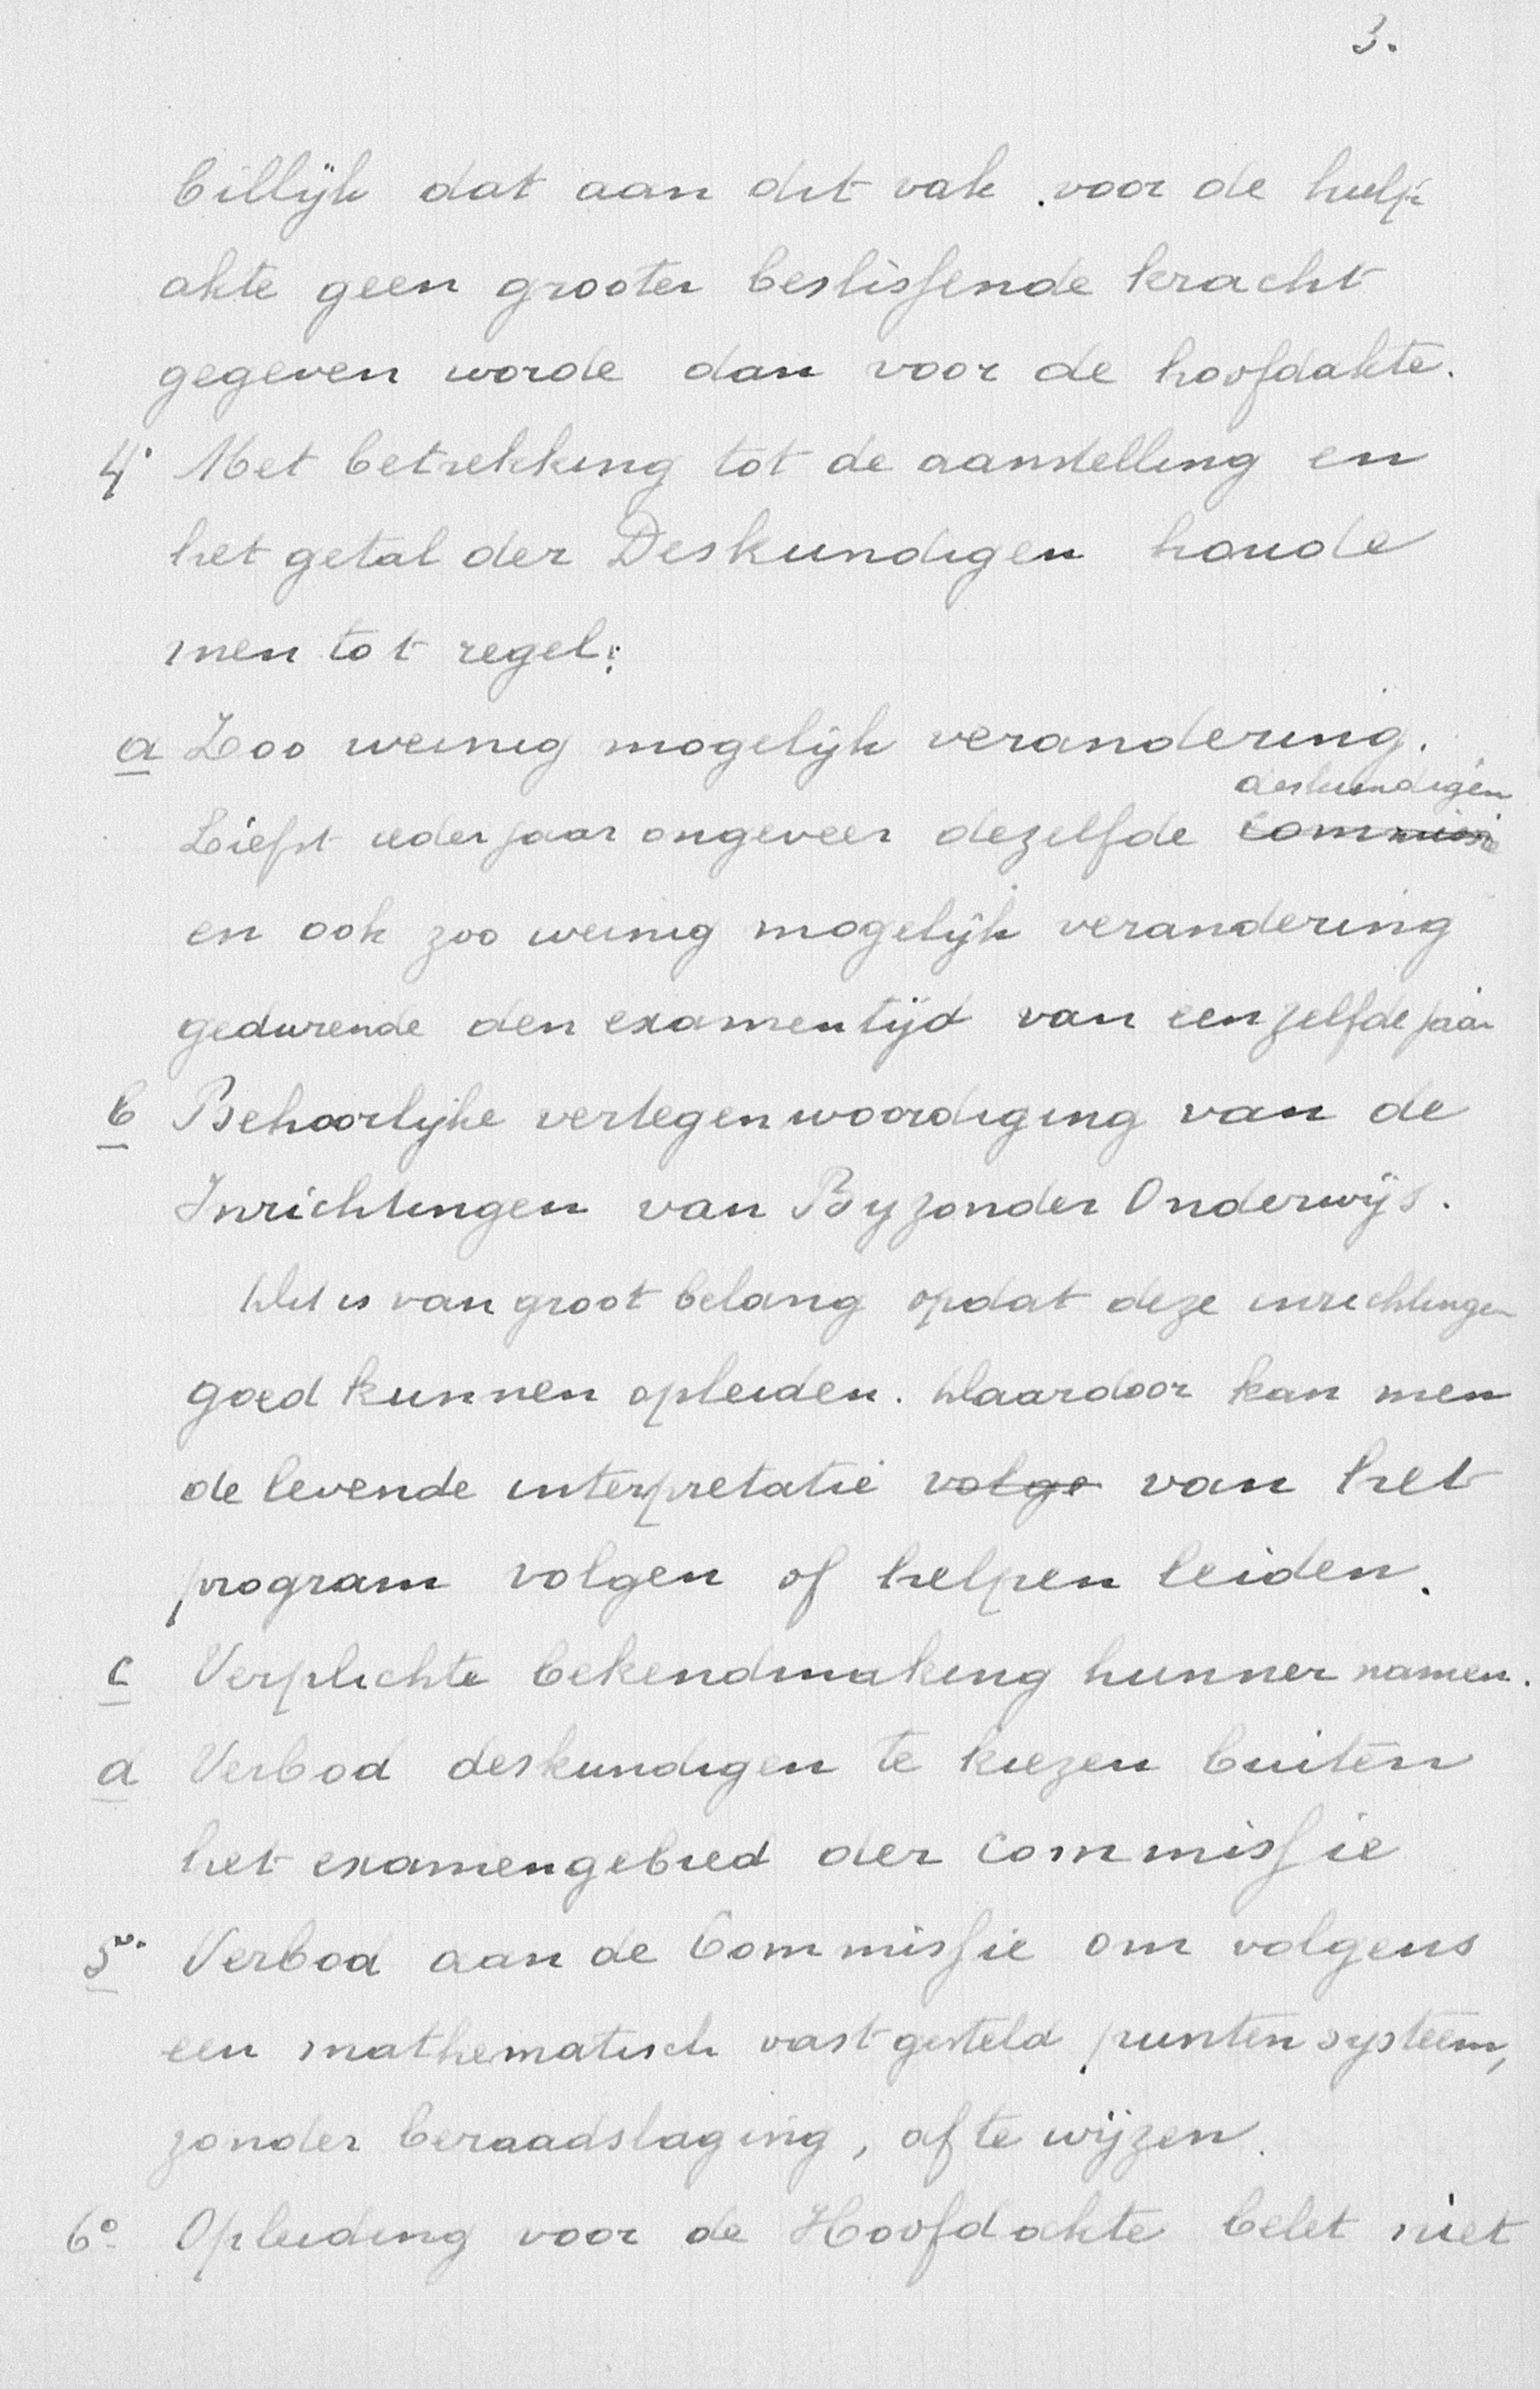 3.
billijk dat aan dit vak voor de hulp
akte geen grooter beslissende kracht
gegeven worde dan voor de hoofdakte.
4° Met betrekking tot de aanstelling en
het getal der Deskundigen houde
men tot regel:
a Zoo weinig mogelijk verandering.
deskundigen
Liefst ieder jaar ongeveer dezelfde commissie
en ook zoo weinig mogelijk verandering
gedurende den examentijd van een zelfde jaar
b Behoorlijke vertegenwoordiging van de
Inrichtingen van Byzonder Onderwijs.
Dit is van groot belang opdat deze inrichtingen
goed kunnen opleiden. Daardoor kan men
de levende interpretatie volge van het
program volgen of helpen leiden.
c Verplichte bekendmaking hunner namen.
d Verbod deskundigen te kiezen buiten
het examengebied der Commissie
5° Verbod aan de Commissie om volgens
een mathematisch vastgesteld puntensysteem,
zonder beraadslaging, af te wijzen.
6° Opleiding voor de Hoofdakte belet niet